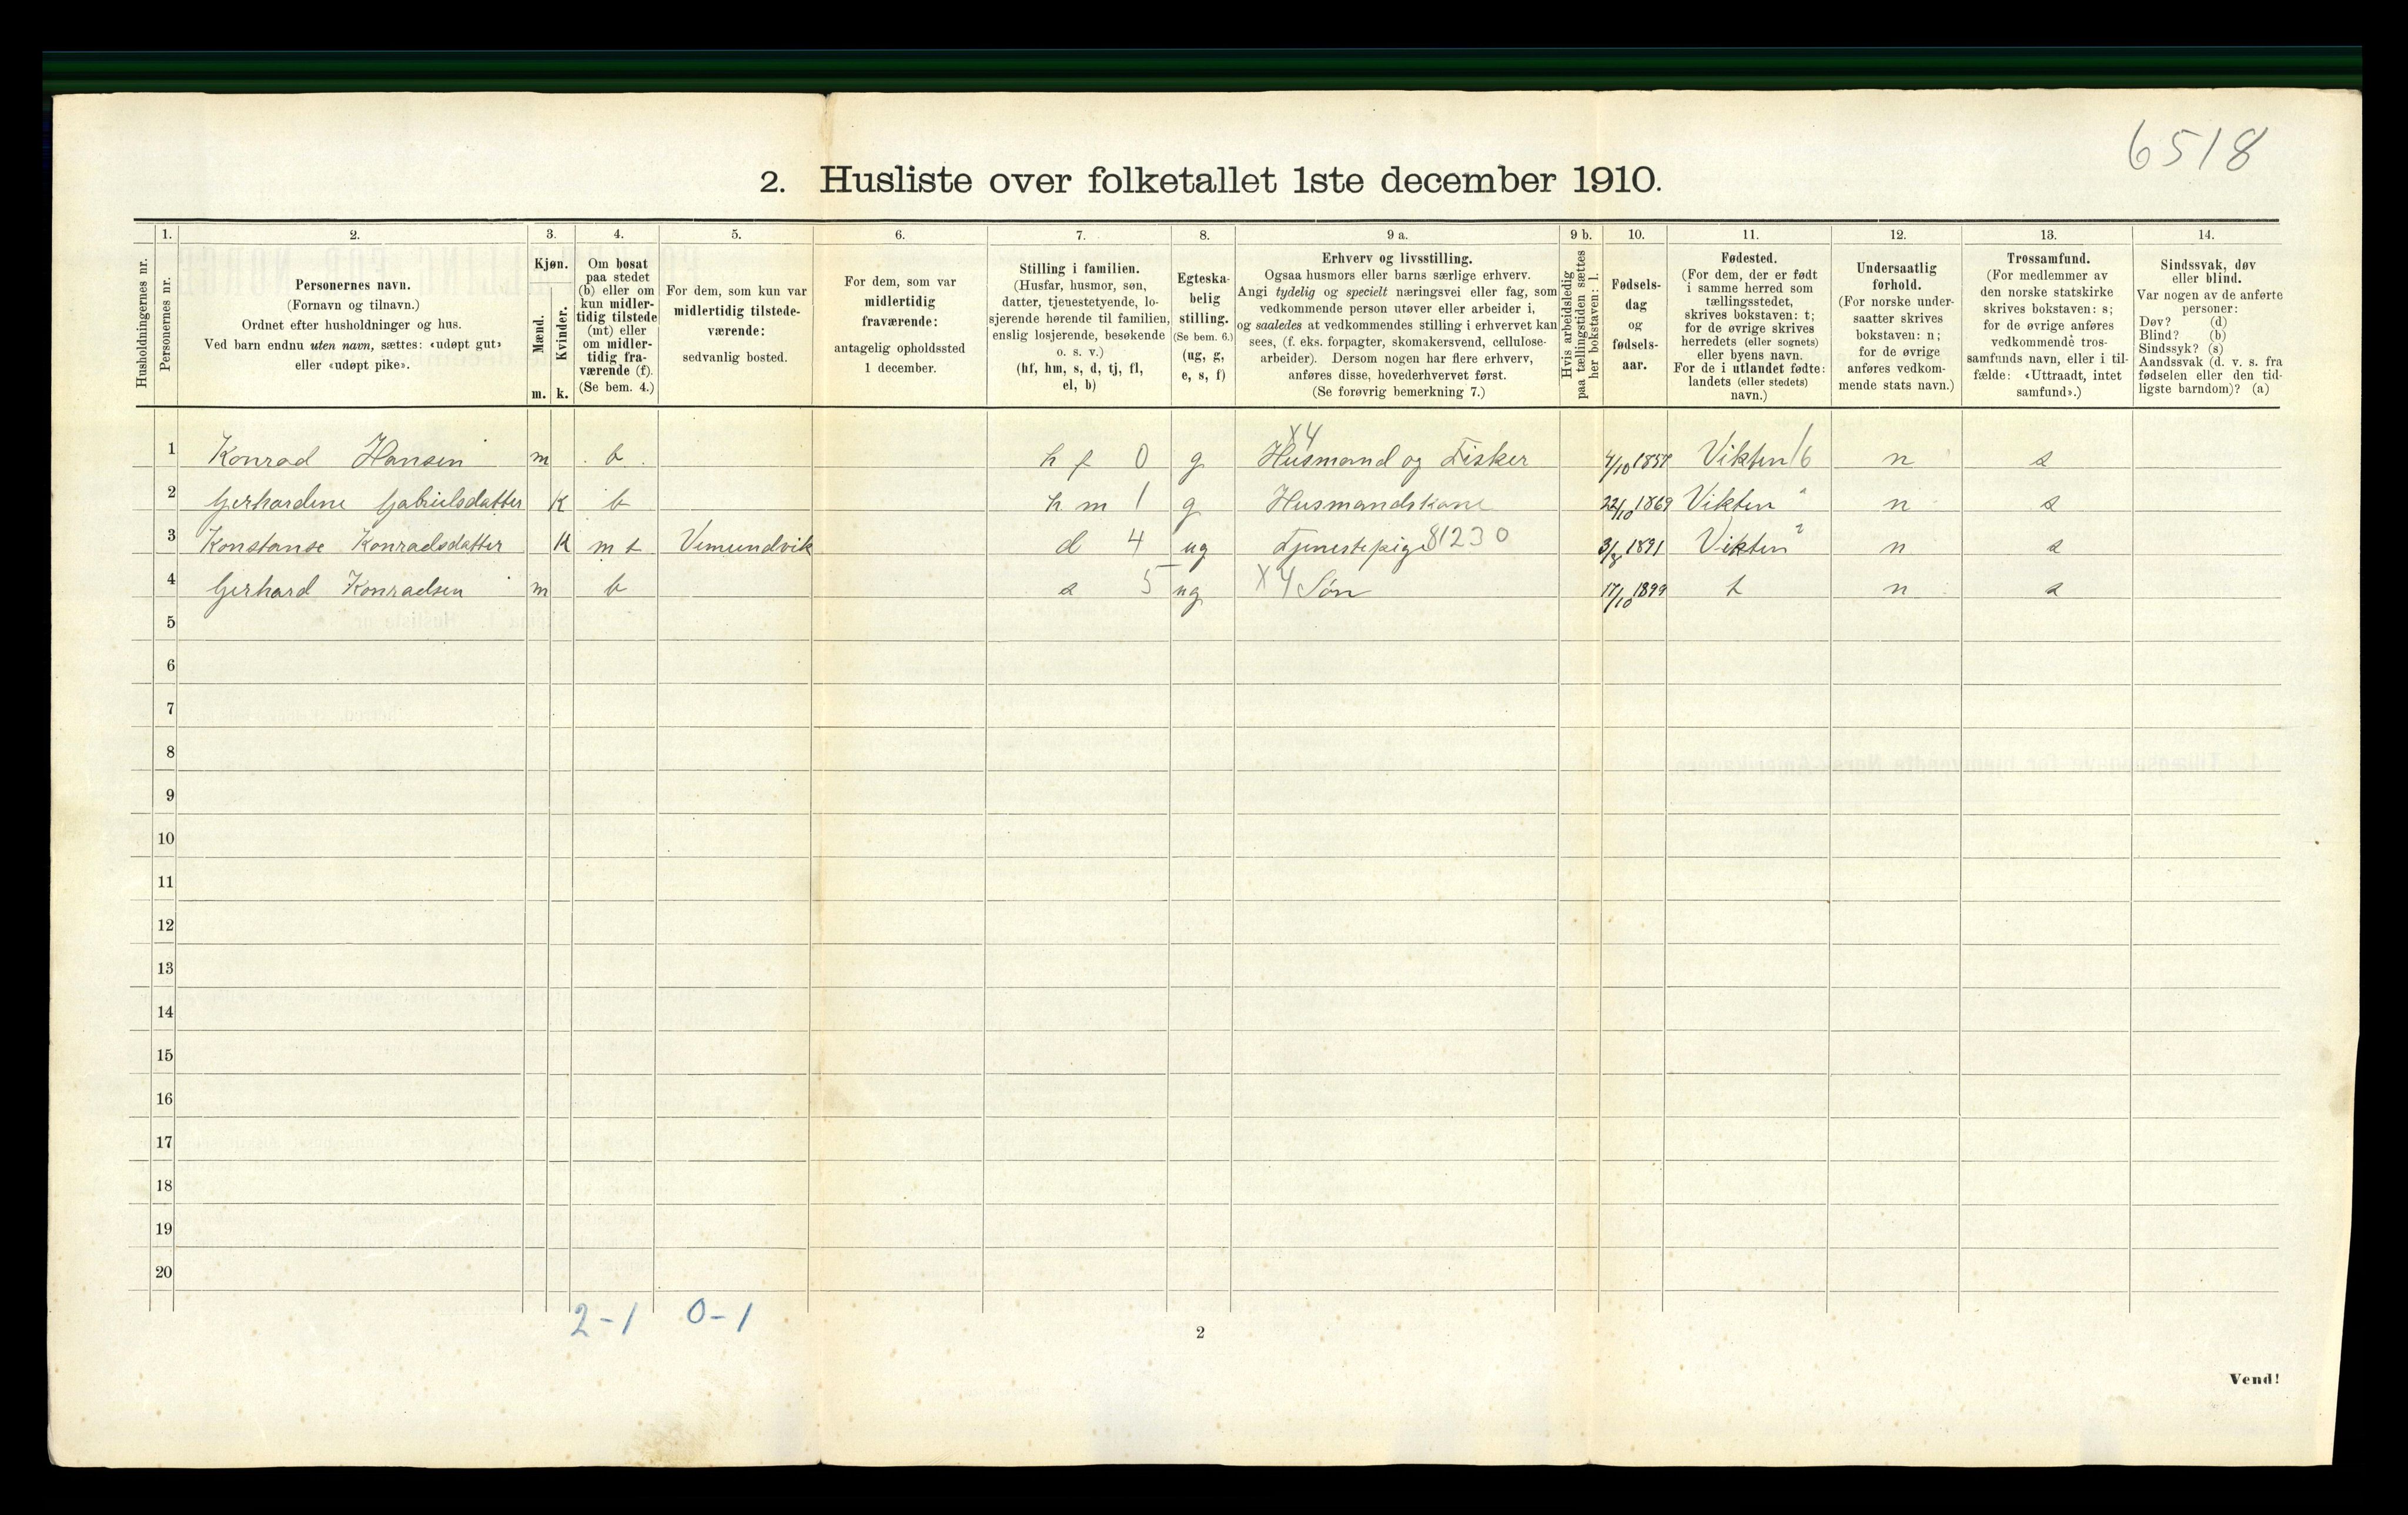 6518
2. Husliste over folketallet 1ste december 1910.
Husholdningernes nr.
1.
Personernes nr.
2.
Personernes navn.
(Fornavn og tilnavn.)
Ordnet efter husholdninger og hus.
Ved barn endnu uten navn, sættes: «udøpt gut»
eller «udøpt pike».
3.
Kjøn.
Mænd.
Kvinder.
m. k.
4.
Om bosat
paa stedet
(b) eller om
kun midler-
tidig tilstede
(mt) eller
om midler-
tidig fra-
værende (f).
(Se bem. 4.)
5.
For dem, som kun var
midlertidig tilstede-
værende:
sedvanlig bosted.
6.
For dem, som var
midlertidig
fraværende:
antagelig opholdssted
1 december.
7.
Stilling i familien.
(Husfar, husmor, søn,
datter, tjenestetyende, lo-
sjerende hørende til familien,
enslig losjerende, besøkende
o. s. v.)
(hf, hm, s, d, tj, fl,
el, b)
8.
Egteska-
belig
stilling.
(Se bem. 6.)
(ug, g,
e, s, f)
9 a.
Erhverv og livsstilling.
Ogsaa husmors eller barns særlige erhverv.
Angi tydelig og specielt næringsvei eller fag, som
vedkommende person utøver eller arbeider i,
og saaledes at vedkommendes stilling i erhvervet kan
sees, (f. eks. forpagter, skomakersvend, cellulose-
arbeider). Dersom nogen har flere erhverv,
anføres disse, hovederhvervet først.
(Se forøvrig bemerkning 7.)
9 b.
Hvis arbeidsledig
paa tællingstiden sættes
her bokstaven: l.
10.
Fødsels-
dag
og
fødsels-
aar.
11.
Fødested.
(For dem, der er født
i samme herred som
tællingsstedet,
skrives bokstaven: t;
for de øvrige skrives
herredets (eller sognets)
eller byens navn.
For de i utlandet fødte:
landets (eller stedets)
navn.)
12.
Undersaatlig
forhold.
(For norske under-
saatter skrives
bokstaven: n;
for de øvrige
anføres vedkom-
mende stats navn.)
13.
Trossamfund.
(For medlemmer av
den norske statskirke
skrives bokstaven: s;
for de øvrige anføres
vedkommende tros-
samfunds navn, eller i til-
fælde: «Uttraadt, intet
samfund».)
14.
Sindssvak, døv
eller blind.
Var nogen av de anførte
personer:
Døv? (d)
Blind? (b)
Sindssyk? (s)
Aandssvak (d. v. s. fra
fødselen eller den tid-
ligste barndom)? (a)
1 Konrad Hansen m b h f 0 g X4 Husmand og Fisker 4/10 Vikten 6 n s
2 Gerhardine Gabrielsdatter K b h m 1 g Husmandskone 22/10 1869 Vikten " n s
3 Konstanse Konradsdatter K m t Vemundvik d 4 ug Tjenestepige 81230 3/8 1891 Vikten n s
4 Gerhard Konradsen m b s 5 ug X4 Søn 17/10 1899 t n s
5
6
7
8
9
10
11
12
13
14
15
16
17
18
19
20
2-1 0-1
2
Vend!